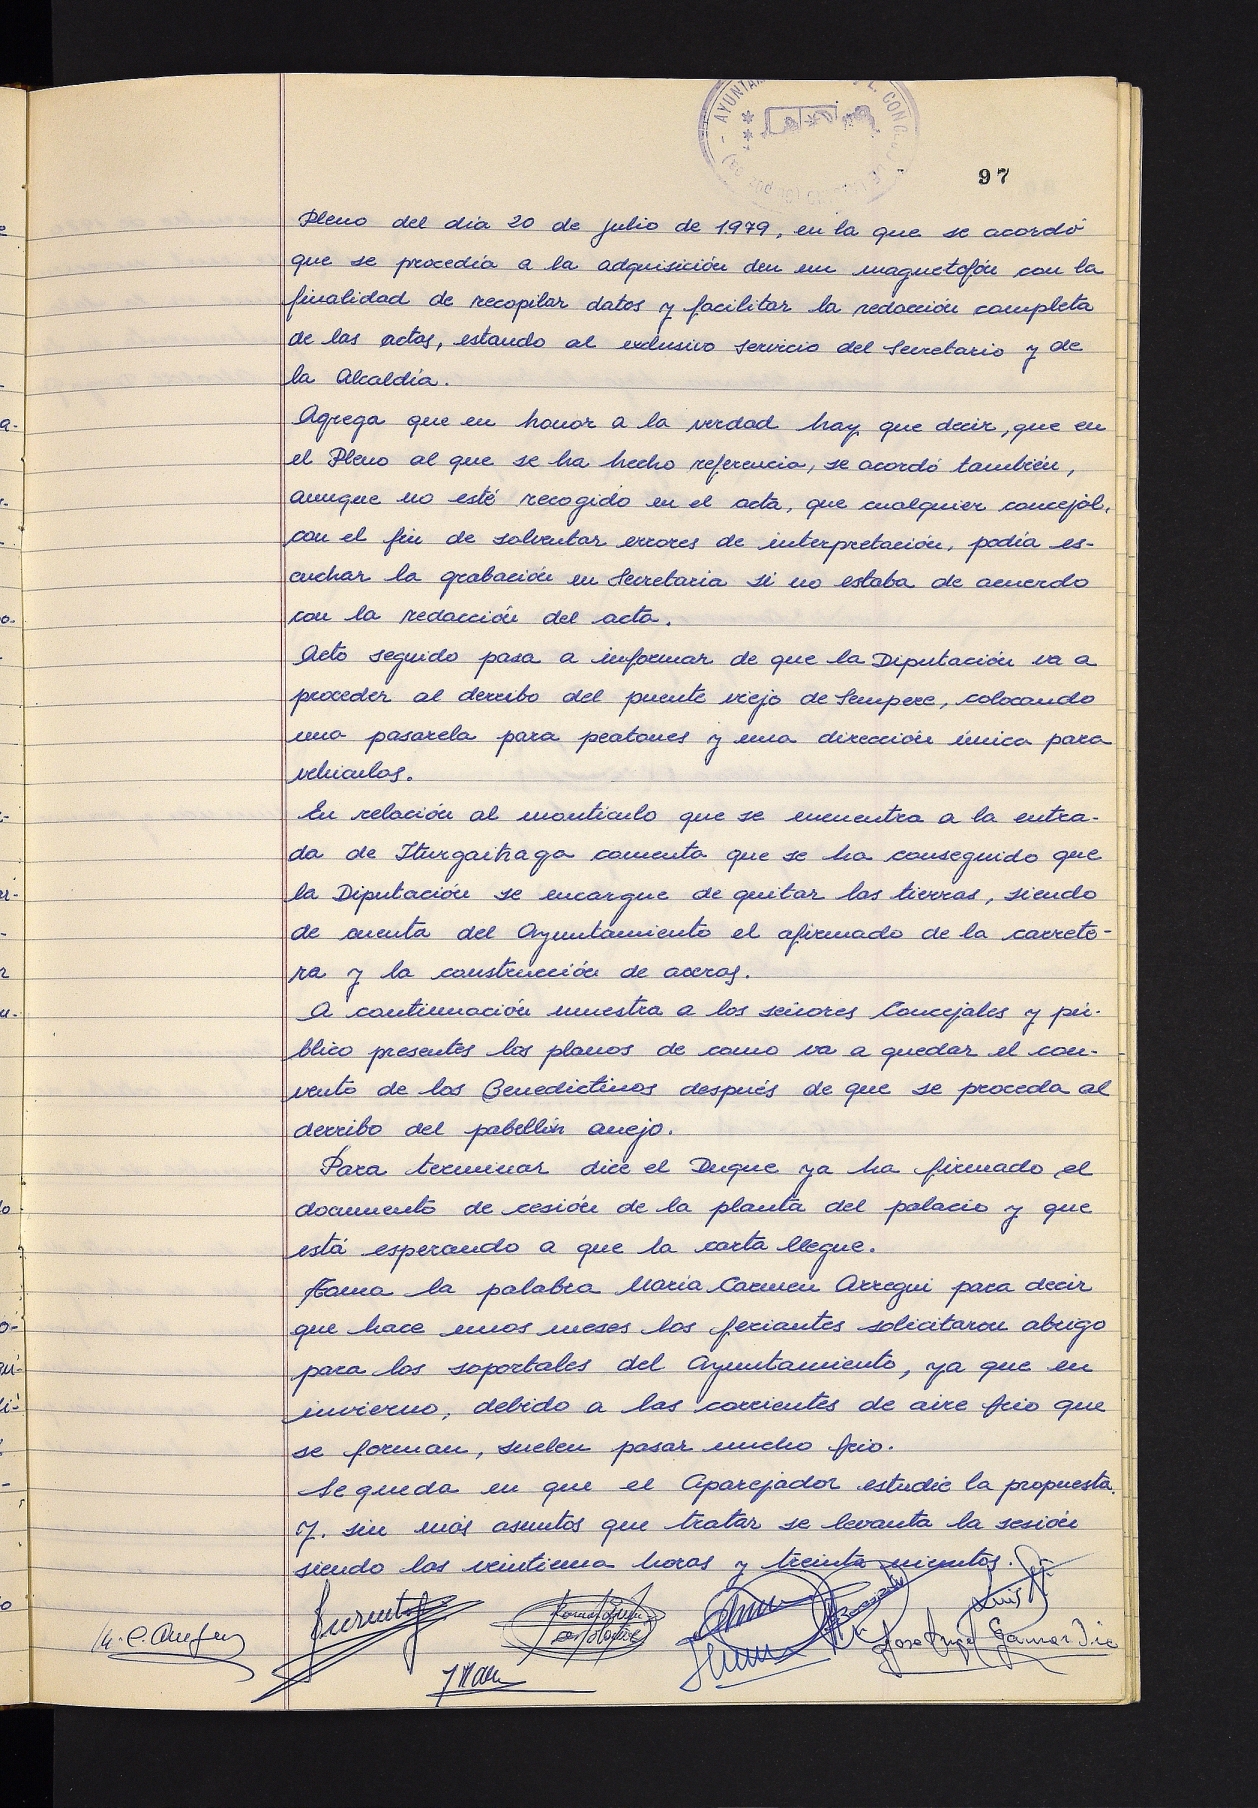 97
Pleno del día 20 de julio de 1979, en la que se acordó
que se procedía a la adquisición den un magnetofón con la
finalidad de recopilar datos y facilitar la redacción completa
de las actas, estando al exclusivo servicio del Secretario y de
la Alcaldía.
Agrega que en honor a la verdad hay que decir, que en
el Pleno al que se ha hecho referencia, se acordó también,
aunque no esté recogido en el acta, que cualquier concejal,
con el fin de solventar errores de interpretación, podía es-
cuchar la grabación en Secretaria si no estaba de acuerdo
con la redacción del acta.
Acto seguido pasa a informar de que la Diputación va a
proceder al derribo del puente viejo de Sempere, colocando
una pasarela para peatones y una dirección única para
vehículos.
En relación al montículo que se encuentra a la entra-
da de Iturgaitzaga comenta que se ha conseguido que
la Diputación se encargue de quitar las tierras, siendo
de cuenta del Ayuntamiento el afirmado de la carrete-
ra y la construcción de aceras.
A continuación muestra a los señores Concejales y pú-
blico presentes los planos de como va a quedar el con-
vento de los Benedictinos después de que se proceda al
derribo del pabellón anejo.
Para terminar dice el Duque ya ha firmado el
documento de cesión de la planta del palacio y que
está esperando a que la carta llegue.
Toma la palabra María Carmen Arregui para decir
que hace unos meses los feriantes solicitaron abrigo
para los soportales del Ayuntamiento, ya que en
invierno, debido a las corrientes de aire frio que
se forman, suelen pasar mucho frio.
Se queda en que el Aparejador estudie la propuesta.
Y. sin más asuntos que tratar se levanta la sesión
siendo las veintiuna horas y treinta minutos.
Jose Angel